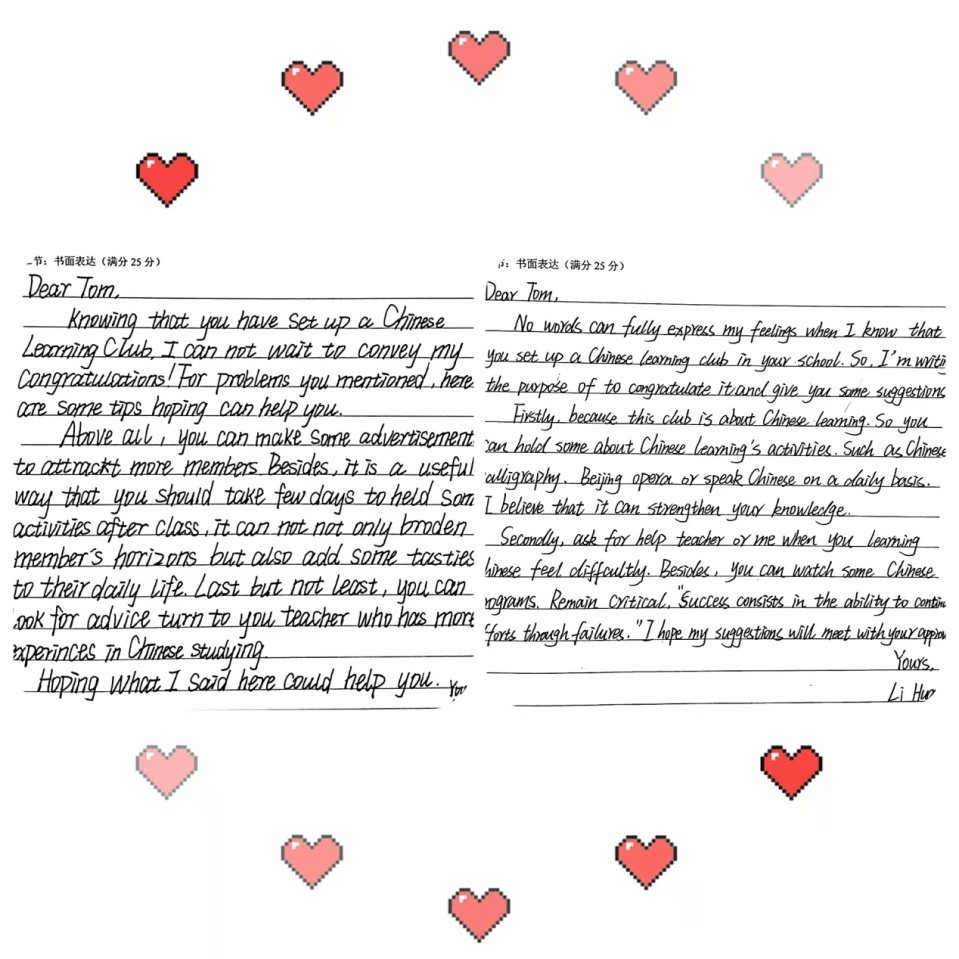 节：书面表达（满分25分）
Dear Tom,
Knowing that you have set up a Chinese
Learning Club, I can not wait to convey my
Congratulations! For problems you mentioned, here
are some tips hoping can help you.
Above all, you can make some advertisement
to attrackt more members. Besides, it is a useful
way that you should take few days to held som
activities after class, it can not not only broden
member's horizons but also add some tasties
to their daily life. Last but not least, you can
ook for advice turn to you teacher who has more
xperinces in Chinese studying.
Hoping what I said here could help you. You
：书面表达（满分25分）
Dear Tom,
No words can fully express my feelings when I know that
you set up a Chinese learning club in your school. So, I'm writi
the purpose of to congratulate it and give you some suggestions
Firstly, because this club is about Chinese learning. So you
an hold some about Chinese learning's activities. Such as Chinese
alligraphy. Beijing opera or speak Chinese on a daily basis.
I believe that it can strengthen your knowledge.
Secondly, ask for help teacher or me when you learning
hinese feel diffcultly. Besides, you can watch some Chinese
rograms. Remain Critical, "Success consists in the ability to contin
forts through failures." I hope my suggestions will meet with your approv
Yours,
Li Hua